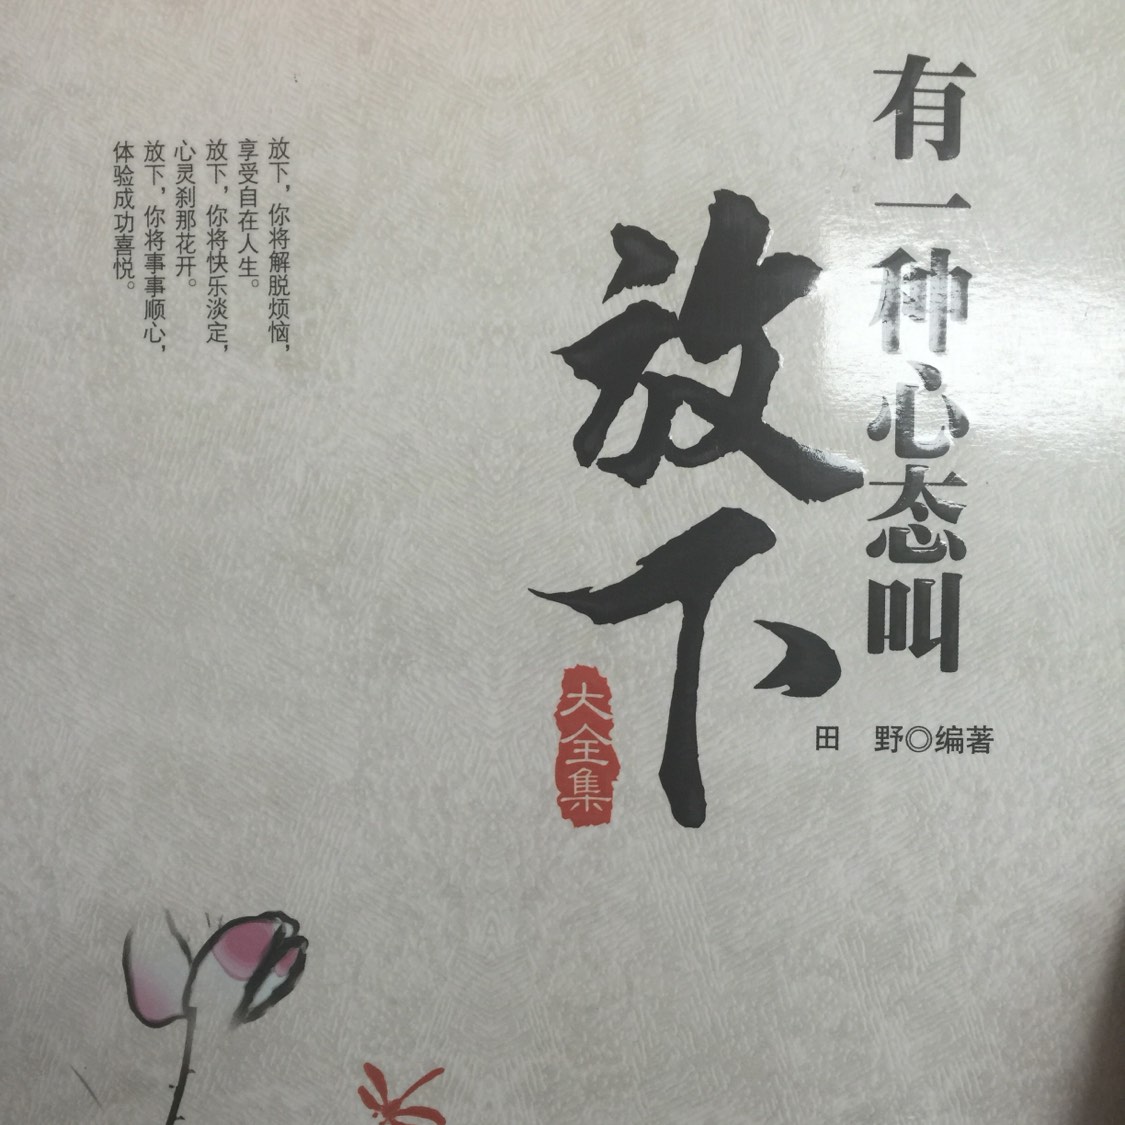 有一种心态叫
放下
大全集
田 野◎编著
放下，你将解脱烦恼，
享受自在人生。
放下，你将快乐淡定，
心灵刹那花开。
放下，你将事事顺心，
体验成功喜悦。